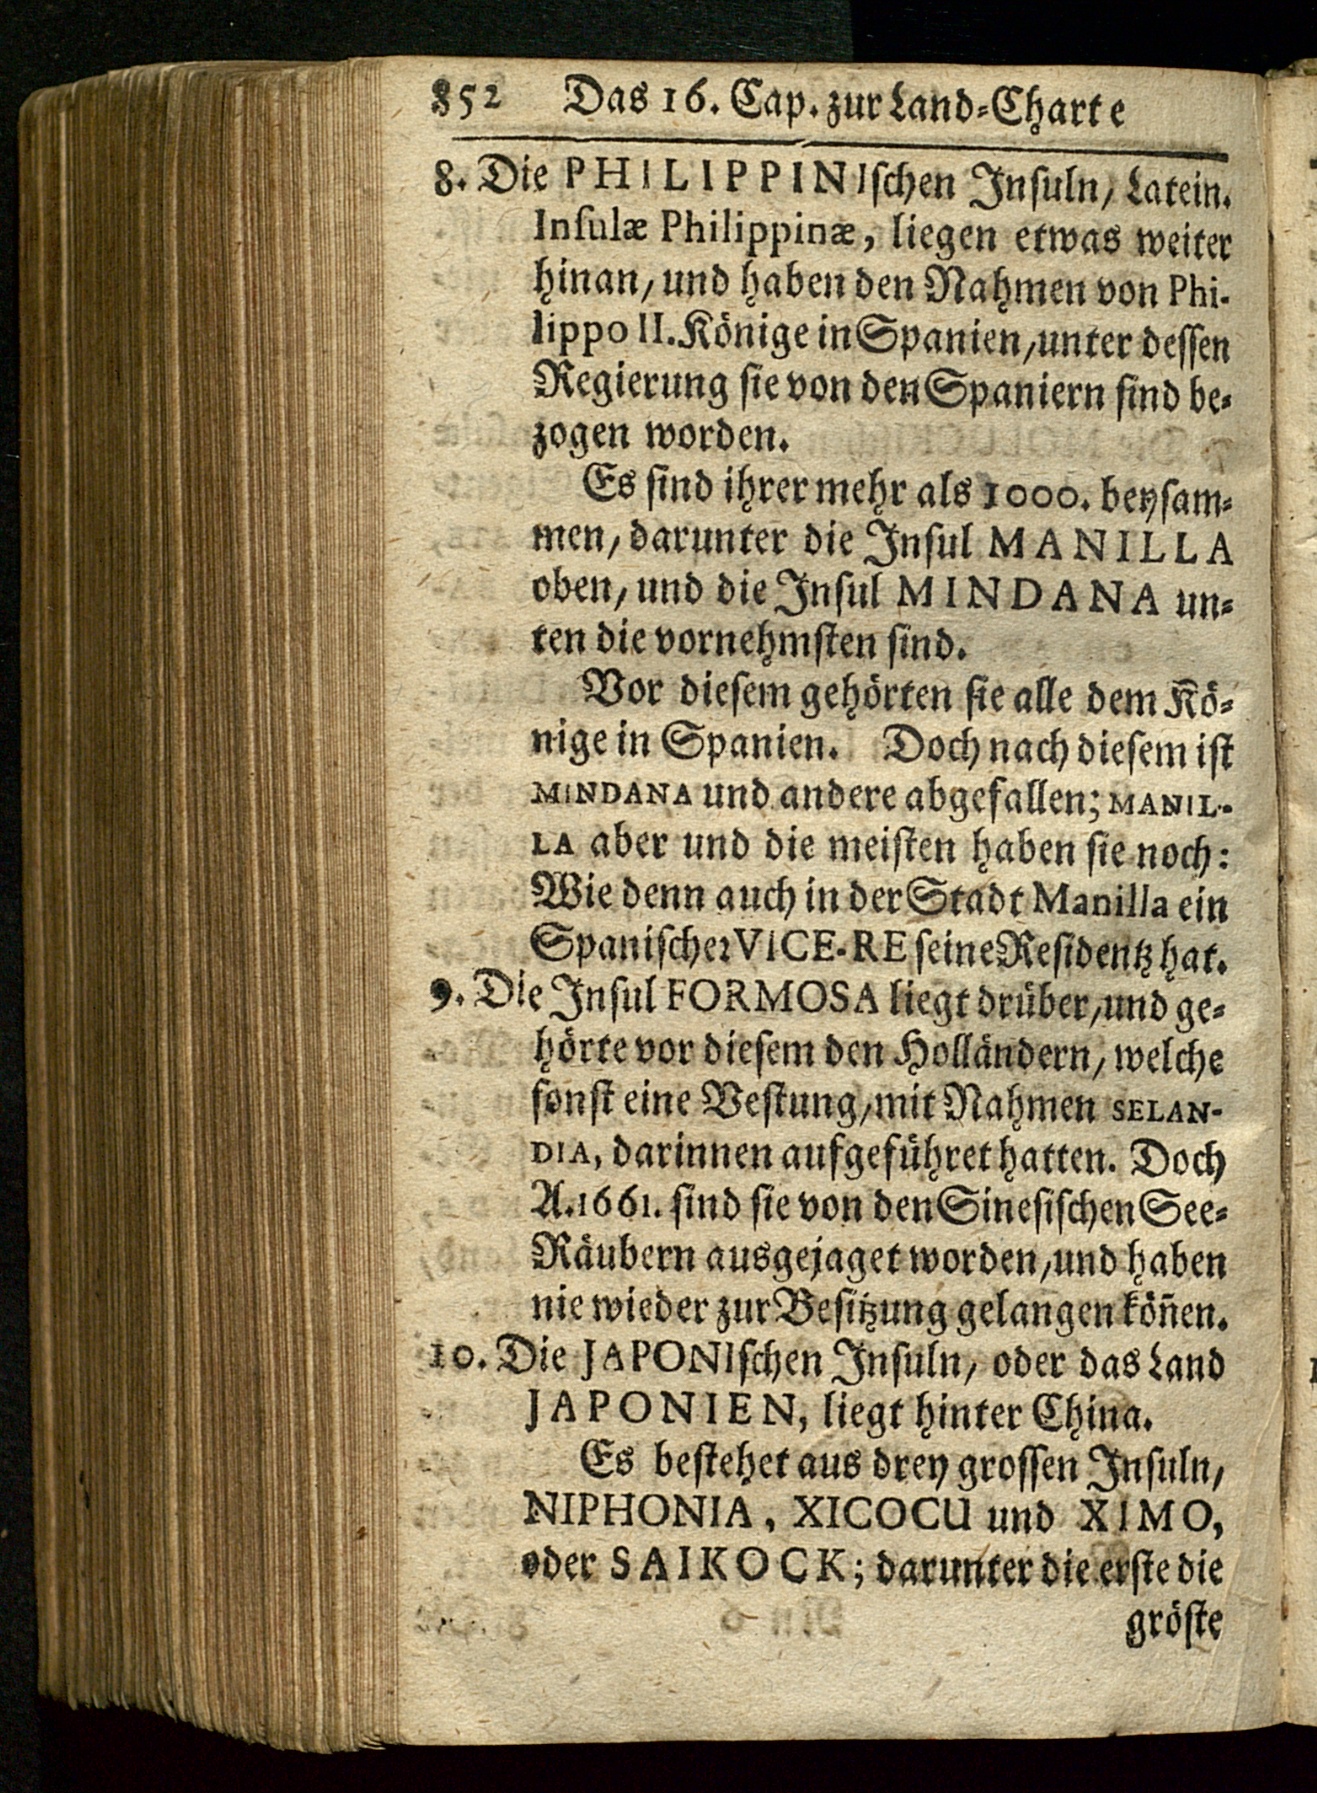 852 Das 16. Cap. zur Land-Charte
8. Die PHILIPPINIschen Insuln, Latein.
Insulæ Philippinæ, liegen etwas weiter
hinan, und haben den Nahmen von Phi-
lippo II. Könige in Spanien, unter dessen
Regierung sie von den Spaniern sind be-
zogen worden.
Es sind ihrer mehr als 1000. beysam-
men, darunter die Insul MANILLA
oben, und die Insul MINDANA un-
ten die vornehmsten sind.
Vor diesem gehörten sie alle dem Kö-
nige in Spanien. Doch nach diesem ist
MINDANA und andere abgefallen; MANIL-
LA aber und die meisten haben sie noch:
Wie denn auch in der Stadt Manilla ein
Spanischer VICE-RE seine Residentz hat.
9. Die Insul FORMOSA liegt drüber, und ge-
hörte vor diesem den Holländern, welche
sonst eine Vestung, mit Nahmen SELAN-
DIA, darinnen aufgeführet hatten. Doch
A. 1661. sind sie von den Sinesischen See-
Räubern ausgejaget worden, und haben
nie wieder zur Besitzung gelangen köñen.
10. Die JAPONIschen Insuln, oder das Land
JAPONIEN, liegt hinter China.
Es bestehet aus drey grossen Insuln,
NIPHONIA, XICOCU und XIMO,
oder SAIKOCK; darunter die erste die
gröste